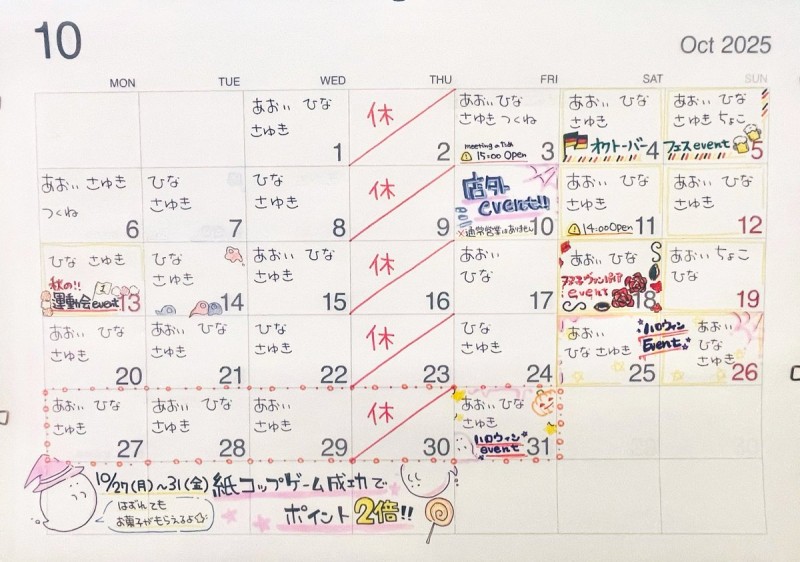 10
Oct 2025
MON TUE WED THU FRI SAT SUN
あおい ひな
さゆき
1
休
2
あおい ひな
さゆき つくね
15:00 Open
3
あおい ひな
さゆき
オクトーバー
4
あおい ひな
さゆき ちょこ
フェス event
5
あおい さゆき
つくね
6
ひな
さゆき
7
ひな
さゆき
8
休
9
店外
event!!
※通常営業はありません
10
あおい
さゆき
14:00 Open
11
あおい ひな
さゆき
12
ひな さゆき
秋の!!
運動会event
13
ひな
さゆき
14
あおい ひな
さゆき
15
休
16
あおい
ひな
17
あおい ひな
event
18
あおい ちょこ
ひな
19
あおい
さゆき
20
あおい ひな
さゆき
21
ひな
さゆき
22
休
23
ひな
さゆき
24
あおい
ひな さゆき
ハロウィン
Event
25
あおい
ひな
さゆき
26
あおい ひな
さゆき
27
あおい ひな
さゆき
28
あおい
さゆき
29
休
30
あおい ひな
さゆき
ハロウィン
event
31
10/27(月)~31(金) 紙コップゲーム成功で
ポイント2倍!!
はずれても
お菓子がもらえるよ